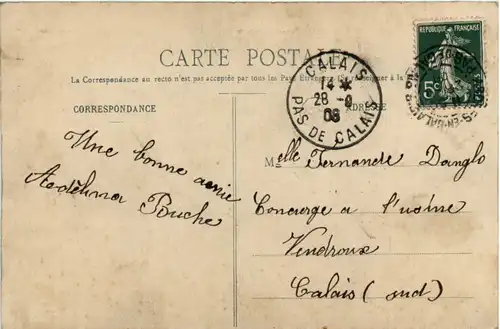 CARTE POSTALE
La Correspondance au recto n'est pas acceptée par tous les Pays Étrangers (Se renseigner à la
CORRESPONDANCE
ADRESSE
RÉPUBLIQUE FRANÇAISE
5c
CALAIS
14
28
08
PAS DE CALAIS
Une bonne amie
Pouche
Melle Fernande Danglo
Concierge a l'usine
Vendroux
Calais (sud)